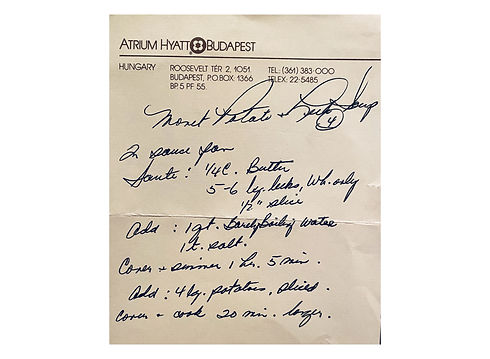 ATRIUM HYATT BUDAPEST
HUNGARY
ROOSEVELT TÉR 2, 1051
BUDAPEST, P.O.BOX: 1366
BP.5 PF 55.
TEL: (361) 383-000
TELEX: 22-5485
Monet Potato & Leek Soup
4
In sauce pan
Saute: 1/4 C. Butter
5-6 lg. leeks, Wh. only
1/2" slice
Add: 1 qt. Barely Boiling Water
1 t. salt.
Cover + simmer 1 hr. 5 min.
Add: 4 lg. potatoes, sliced.
Cover + cook 20 min. longer.